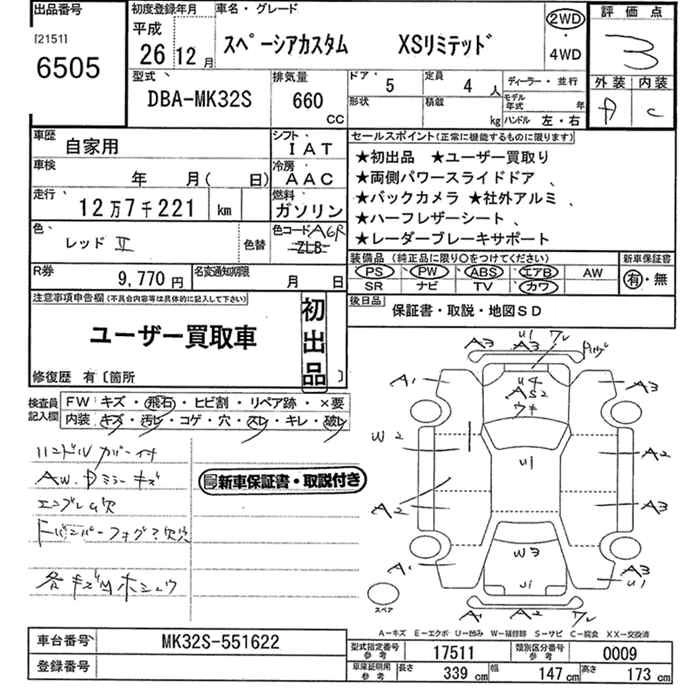 出品番号
[2151]
6505
初度登録年月
平成
26 12月
車名・グレード
スペーシアカスタム XSリミテッド
2WD
・
4WD
評価点
3
外装 内装
A C
型式
DBA-MK32S
排気量
660
CC
ドア
5
定員
4人
ディーラー・並行
形状
積載
kg
モデル年式 年
ハンドル 左・右
車歴 自家用
シフト IAT
車検 年 月( 日)
冷房 AAC
走行 12万7千221 km
燃料 ガソリン
色 レッドⅡ
色替
色コード A6R
ZLB
R券 9,770円
名変通知期限 月 日
セールスポイント(正常に機能するものに限ります)
★初出品 ★ユーザー買取り
★両側パワースライドドア、
★バックカメラ ★社外アルミ、
★ハーフレザーシート、
★レーダーブレーキサポート
装備品(純正品に限り○をつけてください) 新車保証書
PS PW ABS エアB AW
SR ナビ TV カワ
有・無
後日品
保証書・取説・地図SD
注意事項申告欄(不具合内容等は具体的に記入して下さい)
ユーザー買取車
初出品
修復歴 有〔箇所 〕
検査員記入欄
FW キズ・飛石・ヒビ割・リペア跡・×要
内装 キズ・汚レ・コゲ・穴・スレ・キレ・破レ
ハンドルカバー付
AW.Dミラーキズ
エンブレム欠
新車保証書・取説付き
A3 U1 A3 ワレ
A1 U4 A3
AS2
ウキ
W2 U1 A2
A2 A3
A1 W3 A3
U1 U1
A1 A2 A3
スペア
A-キズ E-エクボ U-凹み W-補修跡 S-サビ C-腐食 XX-交換済
車台番号 MK32S-551622
登録番号
型式指定番号 参考 17511
類別区分番号 参考 0009
車庫証明用 参考 長さ 339 cm 幅 147 cm 高さ 173 cm